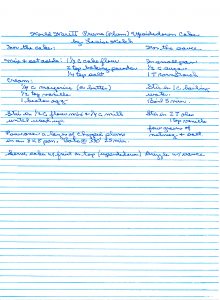 Prune (Plum) Upsidedown Cake
For the cake: For the sauce
Mix + set aside: 1 1/2 c cake flour In small pan
2 tsp baking powder 1/2 c sugar
1/4 tsp salt 1 T cornstarch
Cream: Stir in 1 c. boiling
1/4 c margarine (or butter) water.
1/2 tsp vanilla Boil 5 min.
1 beaten egg
Stir in flour mix + 1/2 c milk Stir in 2 T oleo
until 1 tsp vanilla
few grains of
Pour over a layer of plums nutmeg + salt.
in an 8 x 8 pan. Bake @ 350° 25 min.
Serve cake w/ fruit on top (upsidedown) w/ sauce.